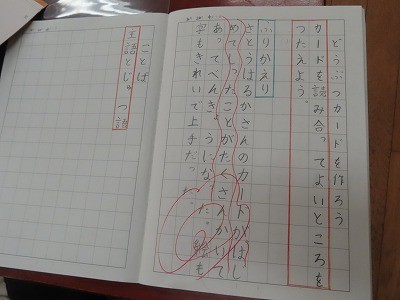 どうぶつカードを作ろう
カードを読み合ってよいところを
つたえよう。
ふりかえり
さとうはるかさんのカードがはじ
めてしったことがたくさんかいて
あってべんきょうになった。絵も
字もきれいで上手だった。
ことば
主語とじゅつ語